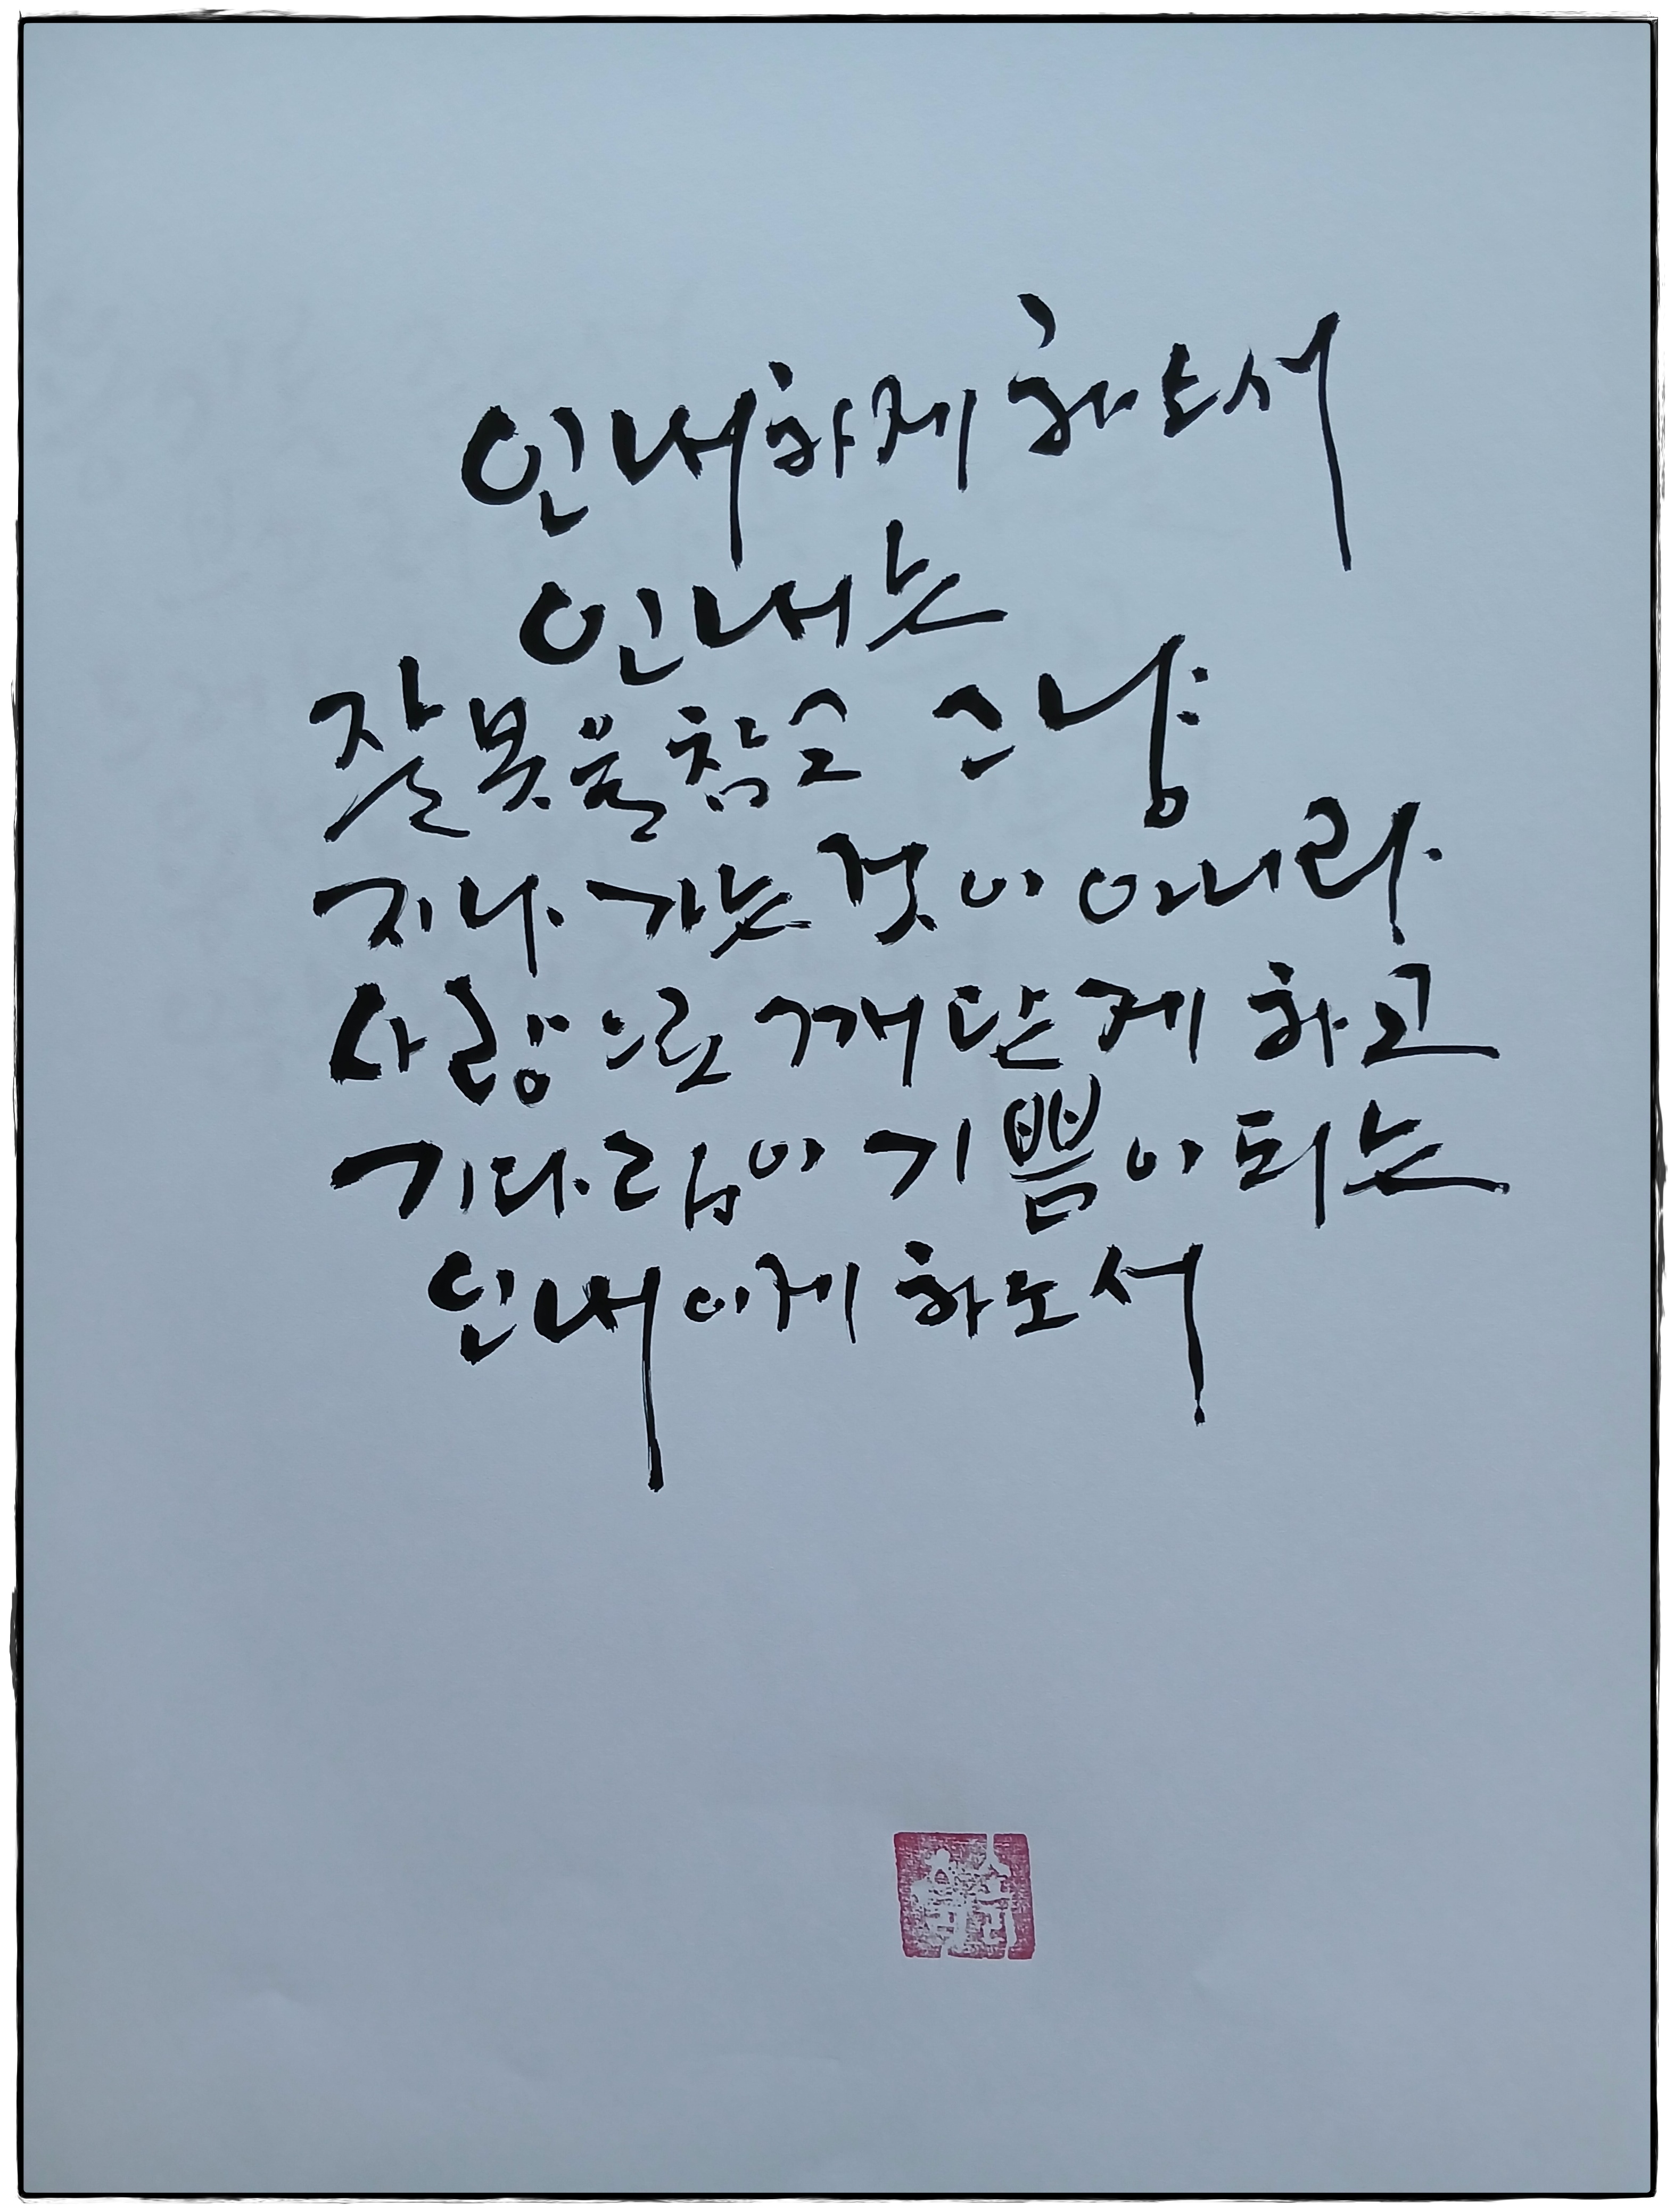 인내하게 하소서
인내는
잘못을 참고 그냥
지나 가는 것이 아니라
사랑으로 깨닫게 하고
기다림이 기쁨이 되는
인내이게 하소서